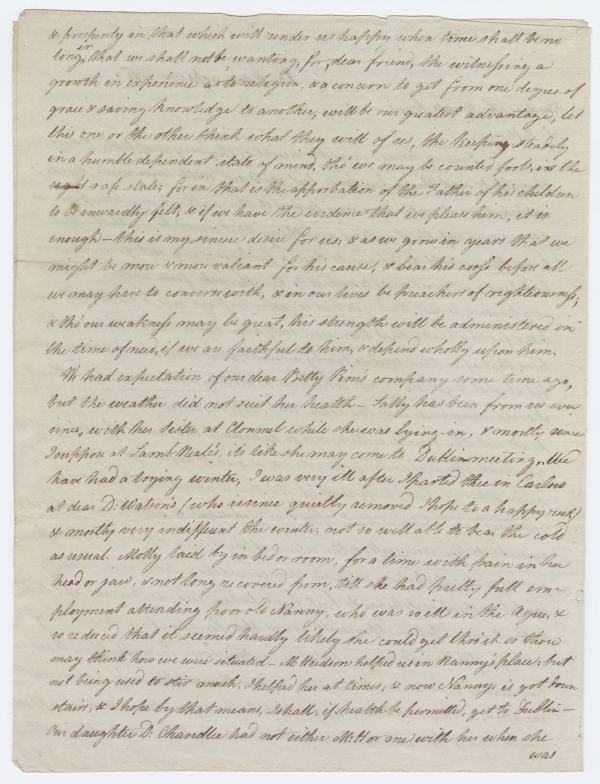 & prosperity in that which will render us happy when time shall be no
longer, that we shall not be wanting; for, dear friend, the witnessing a
growth in experience as to religion, & a concern to get from one degree of
grace & saving knowledge to another, will be our greatest advantage, let
this one or the other think what they will of us, the keeping steadily
in a humble dependent state of mind, tho' we may be counted fools, is the
right safe state; for in that is the approbation of the Father of his children
to be inwardly felt; & if we have the evidence that we please him, it is
enough — this is my sincere desire for us; & as we grow in years that we
might be more & more valiant for his cause, & bear his cross before all
we may have to converse with, & in our lives be preachers of righteousness;
& tho' our weakness may be great, his strength will be administered in
the time of need, if we are faithful to him, & depend wholly upon him.
We had expectation of our dear Betty Pim's company some time ago,
but the weather did not suit her health — Sally has been from us ever
since, with her sister at Clonmel while she was lying-in, & mostly since
I suppose at Saml. Neale's, its like she may come to Dublin meeting. We
have had a trying winter, I was very ill after I parted thee in Carlow
at dear D: Watson's, (who is since quietly removed I hope to a happy rest)
& mostly very indifferent the winter, not so well able to bear the cold
as usual. Molly laid by in bed or room, for a time with pain in her
head or jaw, & not long recovered from, till she had pretty full em-
ployment attending poor old Nanny, who was so ill in the Ague, &
so reduced that it seemed hardly likely she could get thro' it so thou
may think how we were situated — M: Hudson helped us in Nanny's place; but
not being used to stir much, I helped her at times; & now Nanny is got down
stairs, & I hope by that means, I shall, if health be permitted, get to Dublin —
Our daughter D: Chandlee had not either M: H or one with her when she
was